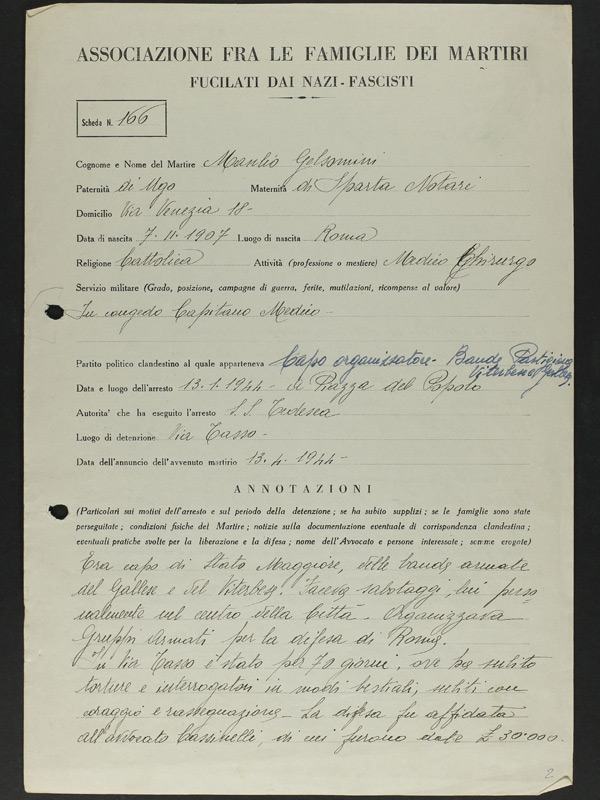 ASSOCIAZIONE FRA LE FAMIGLIE DEI MARTIRI
FUCILATI DAI NAZI-FASCISTI
Scheda N. 166
Cognome e Nome del Martire Manlio Gelsomini
Paternità di Ugo Maternità di Sparta Notari
Domicilio Via Venezia 18-
Data di nascita 7.11.1907 Luogo di nascita Roma
Religione Cattolica Attività (professione o mestiere) Medico Chirurgo
Servizio militare (Grado, posizione, campagne di guerra, ferite, mutilazioni, ricompense al valore)
In congedo Capitano Medico -
Partito politico clandestino al quale apparteneva Capo organizzatore - Bande Partigiane
Viterbese
Data e luogo dell'arresto 13.1.1944 - a Piazza del Popolo
Autorita' che ha eseguito l'arresto S.S. Tedesca
Luogo di detenzione Via Tasso -
Data dell'annuncio dell'avvenuto martirio 13.4.1944 -
ANNOTAZIONI
(Particolari sui motivi dell'arresto e sul periodo della detenzione; se ha subito supplizi; se le famiglie sono state
perseguitate; condizioni fisiche del Martire; notizie sulla documentazione eventuale di corrispondenza clandestina;
eventuali pratiche svolte per la liberazione e la difesa; nome dell'Avvocato e persone interessate; somme erogate)
Era capo di Stato Maggiore, delle bande armate
del Gallese e del Viterbese. Faceva sabotaggi, lui perso=
nalmente nel centro della Città. Organizzava
Gruppi Armati per la difesa di Roma.
in Via Tasso è stato per 70 giorni, ove ha subito
torture e interrogatori in modi bestiali, subiti con
coraggio e rassegnazione - La difesa fu affidata
all'avvocato Cassinelli, di cui furono date £ 30.000.
2